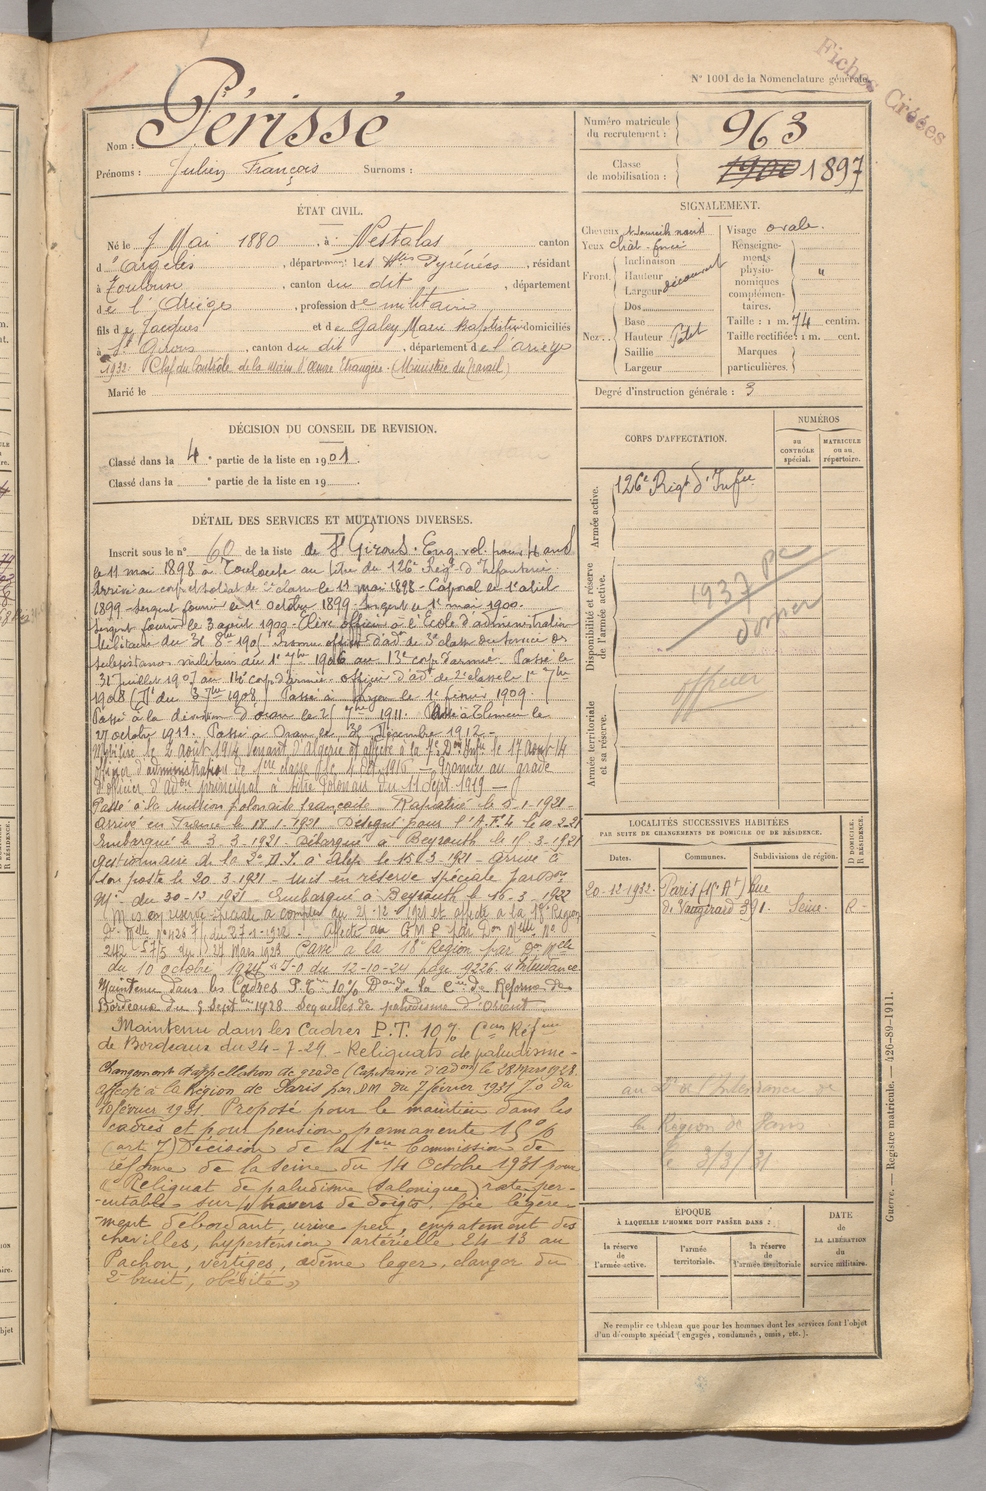 Fiches Croisées
N° 1001 de la Nomenclature générale.
Nom : Périssé
Prénoms : Julien François Surnoms :
Numéro matricule du recrutement : 963
Classe de mobilisation : 1900 1897
ÉTAT CIVIL.
Né le 7 Mai 1880, à Vestalas canton
d'Argelès, département les Htes Pyrénées, résidant
à Toulouse, canton du dit, département
de l'Ariège, profession de militaire
fils de Jacques et de Galey Marie Baptistine domiciliés
à St Girons, canton du dit, département de l'Ariège
1932: Chef du Contrôle de la Main d'Œuvre Etrangère (Ministère du Travail)
Marié le
SIGNALEMENT.
Cheveux
Yeux chât.
Front. Inclinaison
Hauteur découvert
Largeur
Nez. Dos
Base
Hauteur Petit
Saillie
Largeur
Visage ovale.
Renseignements physionomiques complémentaires. "
Taille : 1 m. 74 centim.
Taille rectifiée : 1 m. cent.
Marques particulières.
Degré d'instruction générale : 3
DÉCISION DU CONSEIL DE REVISION.
Classé dans la 4e partie de la liste en 1901.
Classé dans la e partie de la liste en 19 .
DÉTAIL DES SERVICES ET MUTATIONS DIVERSES.
Inscrit sous le n° 60 de la liste de St Girons. Eng. vol. pour 4 ans
le 11 mai 1898 à Toulouse au titre du 126e Régt d'Infanterie.
Arrivé au corps et soldat de 2e classe le 11 mai 1898 - Caporal le 1er avril
1899 - Sergent fourrier le 1er Octobre 1899 - Sergent le 1er mai 1900.
Sergent fourrier le 3 août 1900. Elève officier à l'Ecole d'administration
militaire du 31 8bre 1905 Promu officier d'adon de 3e classe du service des
subsistances militaires du 1er 7bre 1906 au 13e corps d'armée. Passé le
31 juillet 1907 au 14e corps d'armée. officier d'adon de 2e classe le 1er 7bre
1908 (D. du 3 7bre 1908) Passé à Lyon le 1er février 1909.
Passé à la division d'Oran le 25 7bre 1911. Passé à Tlemcen le
27 octobre 1911. Passé à Oran le 31 décembre 1912.
Mobilisé le 2 Août 1914 Venant d'Algérie et affecté à la Don Infie le 17 Août 14
Officier d'administration de 1ère classe le 1 Oct. 1916 - Promu au grade
d'officier d'adon principal à titre Polonais du 11 Sept 1919 -
Passé à la mission polonaise française Rapatrié le 5-1-1921 -
Arrivé en France le 18-1-1921. Désigné pour l'A.F.L. le 10-2-21
Embarqué le 3-3-1921. Débarqué à Beyrouth le 15-3-1921
gestionnaire de la 2e D.I. à Alep le 15-3-1921 - Arrivé à
son poste le 20-3-1921 - Mis en réserve spéciale par Don
Mle du 30-12 1921 Embarqué à Beyrouth le 16-3-1922
Mis en réserve spéciale à compter du 21-12-1921 et affecté à la 18e Région
Don Melle N° 4267/ du 27-1-1922. Affecté au G.M.P. par Don Melle N°
242-57/5 du 24 Mars 1923 Passé à la 18e Région par Don Melle
du 10 octobre 1924. J.O du 12-10-24 page 9226 "Intendance
Maintenu dans les Cadres P.Tre 10% Don de la Cion de Réforme de
Bordeaux du 5 Septbre 1928 Sequelles de paludisme d'orient
Maintenu dans les Cadres P.T. 10% Con Réfme
de Bordeaux du 24-7-29. - Reliquats de paludisme -
Changement d'appellation de grade (Capitaine d'adon) le 28 Mars 1928.
affecté à la Région de Paris par DM. du 7 février 1931 J.O du
10 février 1931. Proposé pour le maintien dans les
cadres et pour pension permanente 15%
(art 7) Décision de la 1ère Commission de
réforme de la Seine du 14 Octobre 1931 pour
"Reliquat de paludisme (Salonique) rate per-
-cutable sur 4 travers de doigts, foie légère-
-ment débordant, urine peu, empatement des
chevilles, hypertension artérielle 24-13 au
Pachon, vertiges, œdème léger, clangor du
2e bruit, obésité"
CORPS D'AFFECTATION.
NUMÉROS
au CONTRÔLE spécial.
MATRICULE ou au répertoire.
Armée active.
126e Régt d'Infie
Disponibilité et réserve de l'armée active.
1937 PC
dossier
officier
Armée territoriale et sa réserve.
LOCALITÉS SUCCESSIVES HABITÉES
PAR SUITE DE CHANGEMENTS DE DOMICILE OU DE RÉSIDENCE.
Dates. Communes. Subdivisions de région. D DOMICILE. R RÉSIDENCE.
20-12-1932. Paris (15e At) Rue
de Vaugirard 391. Seine. R -
au Dr de l'Intendance de
la Région de Paris
le 3/3/31
ÉPOQUE
À LAQUELLE L'HOMME DOIT PASSER DANS :
la réserve de l'armée active.
l'armée territoriale.
la réserve de l'armée territoriale
DATE de LA LIBÉRATION du service militaire.
Ne remplir ce tableau que pour les hommes dont les services font l'objet
d'un décompte spécial (engagés, condamnés, omis, etc.).
Guerre. — Registre matricule. — 426-89-1911.